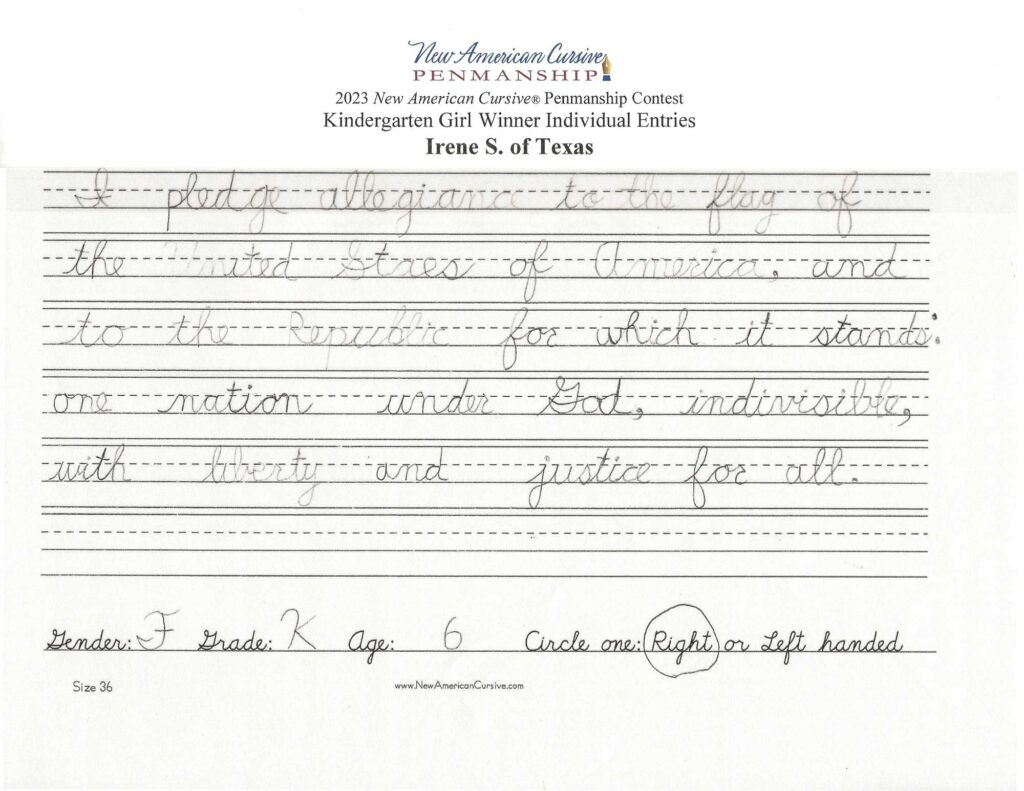 New American Cursive
PENMANSHIP
2023 New American Cursive® Penmanship Contest
Kindergarten Girl Winner Individual Entries
Irene S. of Texas
I pledge allegiance to the flag of
the United Staes of America, and
to the Republic for which it stands:
one nation under God, indivisible,
with liberty and justice for all.
Gender: F Grade: K Age: 6 Circle one: Right or Left handed
Size 36 www.NewAmericanCursive.com